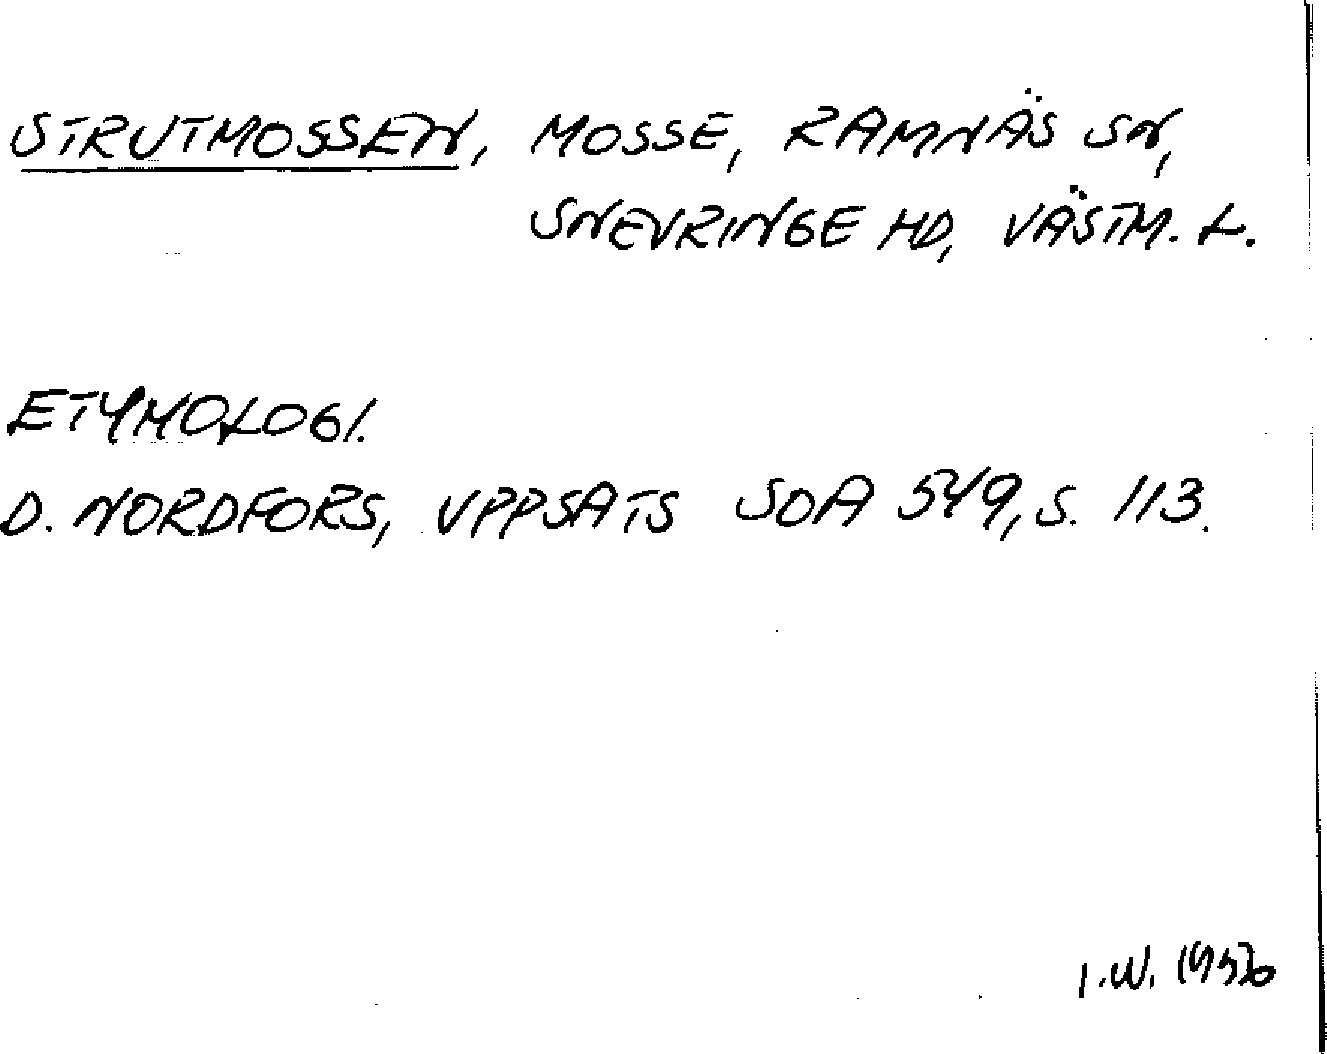 STRUTMOSSEN, MOSSE, RAMNÄS SN,
SNEVRINGE HD, VÄSTM. L.
ETYMOLOGI.
D. NORDFORS, UPPSATS SOA 549, S. 113.
I.W.